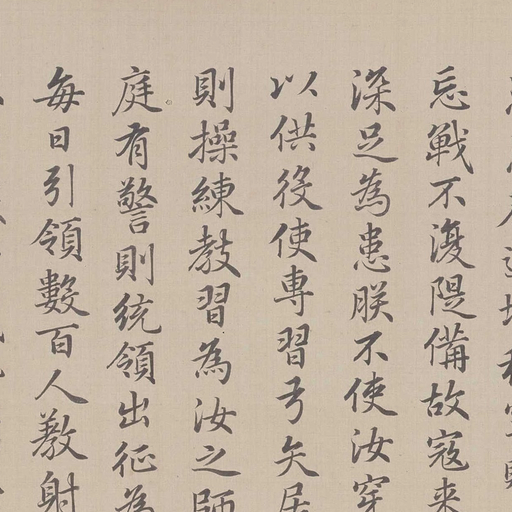 忘戰不復隄備故寇来
深足為患朕不使汝穿
以供役使專習弓矢居
則操練教習為汝之師
庭有警則統領出征為
每日引領數百人教射